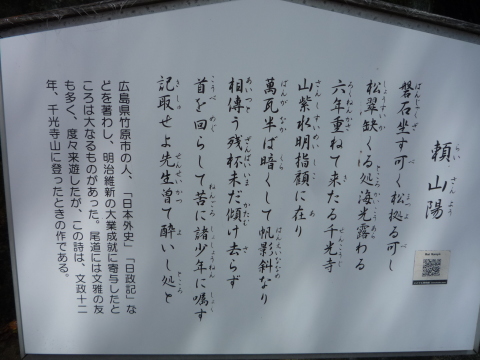 頼山陽
らいさんよう
磐石坐す可く松拠る可し
松翠缺くる処海光露わる
六年重ねて来たる千光寺
山紫水明指顧に在り
萬瓦半ば暗くして帆影斜なり
相傳う残杯未だ傾け去らず
首を回らして苦に諸少年に嘱す
記取せよ先生曽て酔いし処と
広島県竹原市の人、「日本外史」「日政記」な
どを著わし、明治維新の大業成就に寄与したと
ころは大なるものがあった。尾道には文雅の友
も多く、度々来遊したが、この詩は、文政十二
年、千光寺山に登ったときの作である。